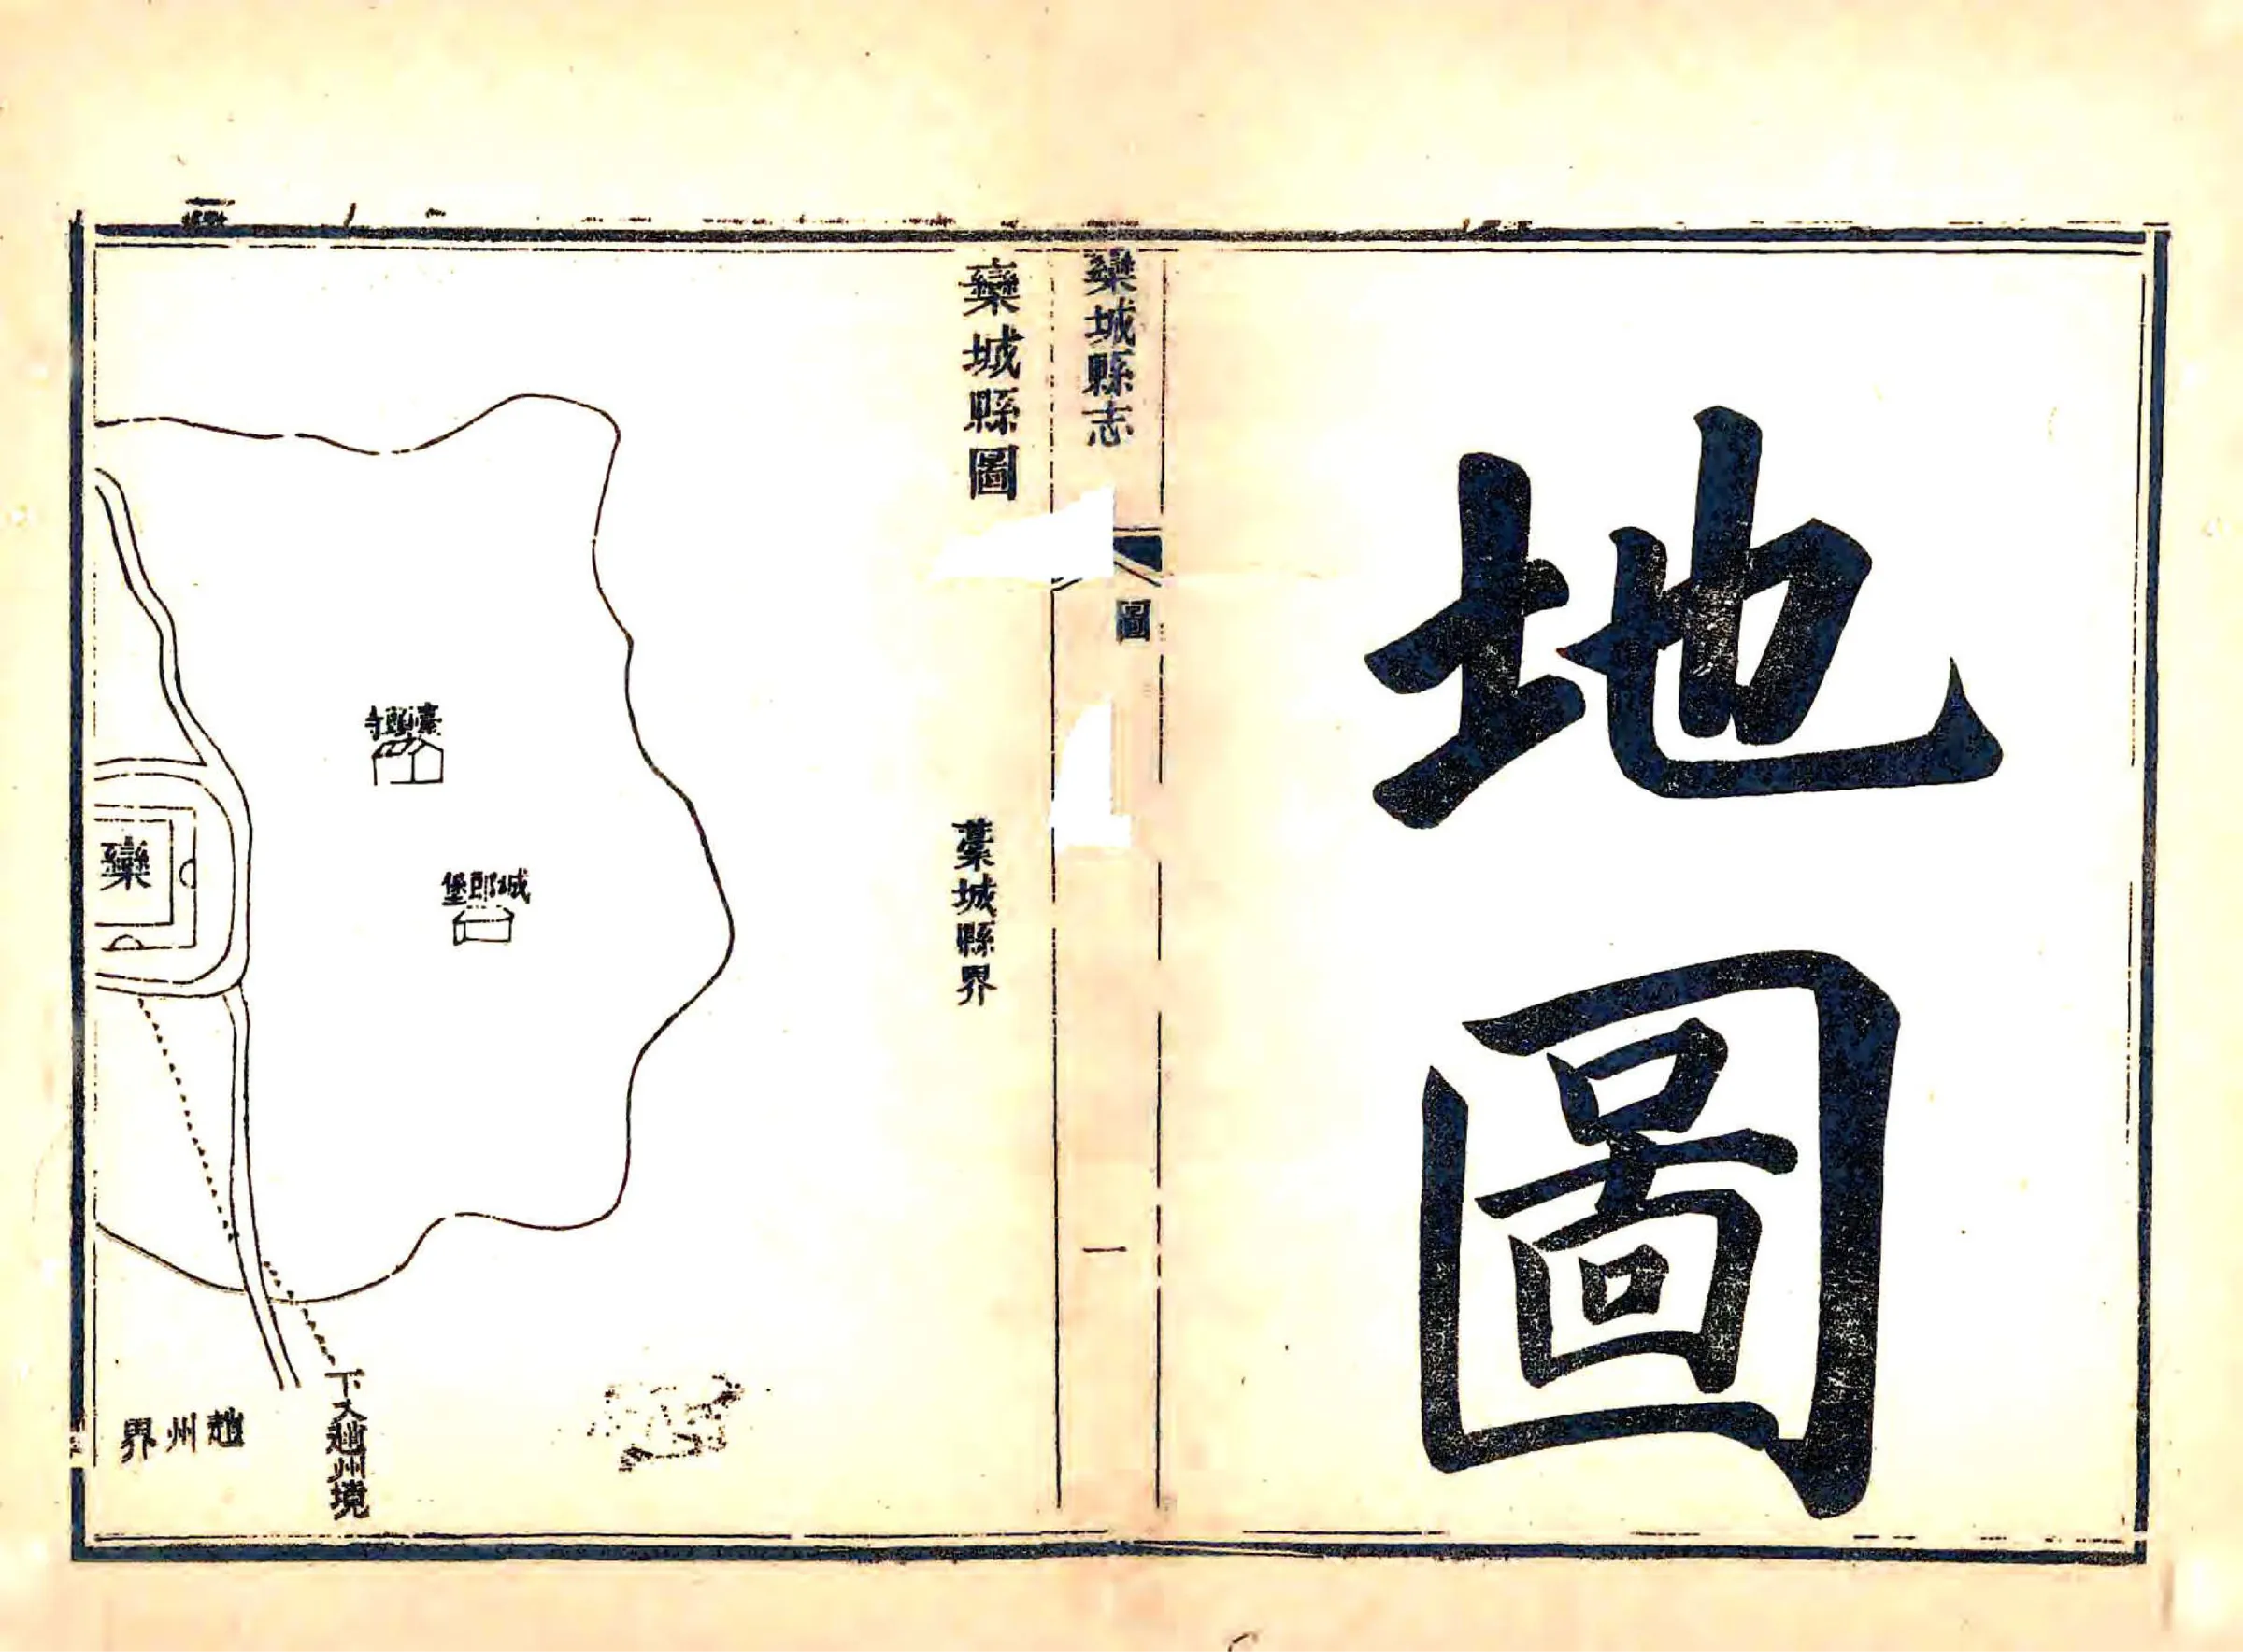 地圖
欒城縣志
圖
一
欒城縣圖
藁城縣界
臺頭寺
城郎堡
欒
下入趙州境
趙州界